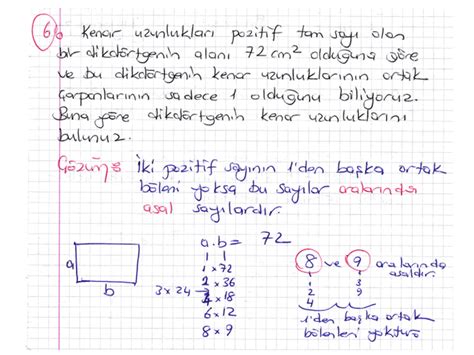 6. Kenar uzunlukları pozitif tam sayı olan
bir dikdörtgenin alanı 72 cm² olduğuna göre
ve bu dikdörtgenin kenar uzunluklarının ortak
çarpanlarının sadece 1 olduğunu biliyoruz.
Buna göre dikdörtgenin kenar uzunluklarını
bulunuz.
Çözüm: İki pozitif sayının 1'den başka ortak
böleni yoksa bu sayılar aralarında
asal sayılardır.
a.b = 72
a
b
1 x 72
2 x 36
3 x 24 → 4 x 18
6 x 12
8 x 9
8 ve 9 aralarında
asaldır.
1 1
2 3
4 9
1'den başka ortak
bölenleri yoktur.